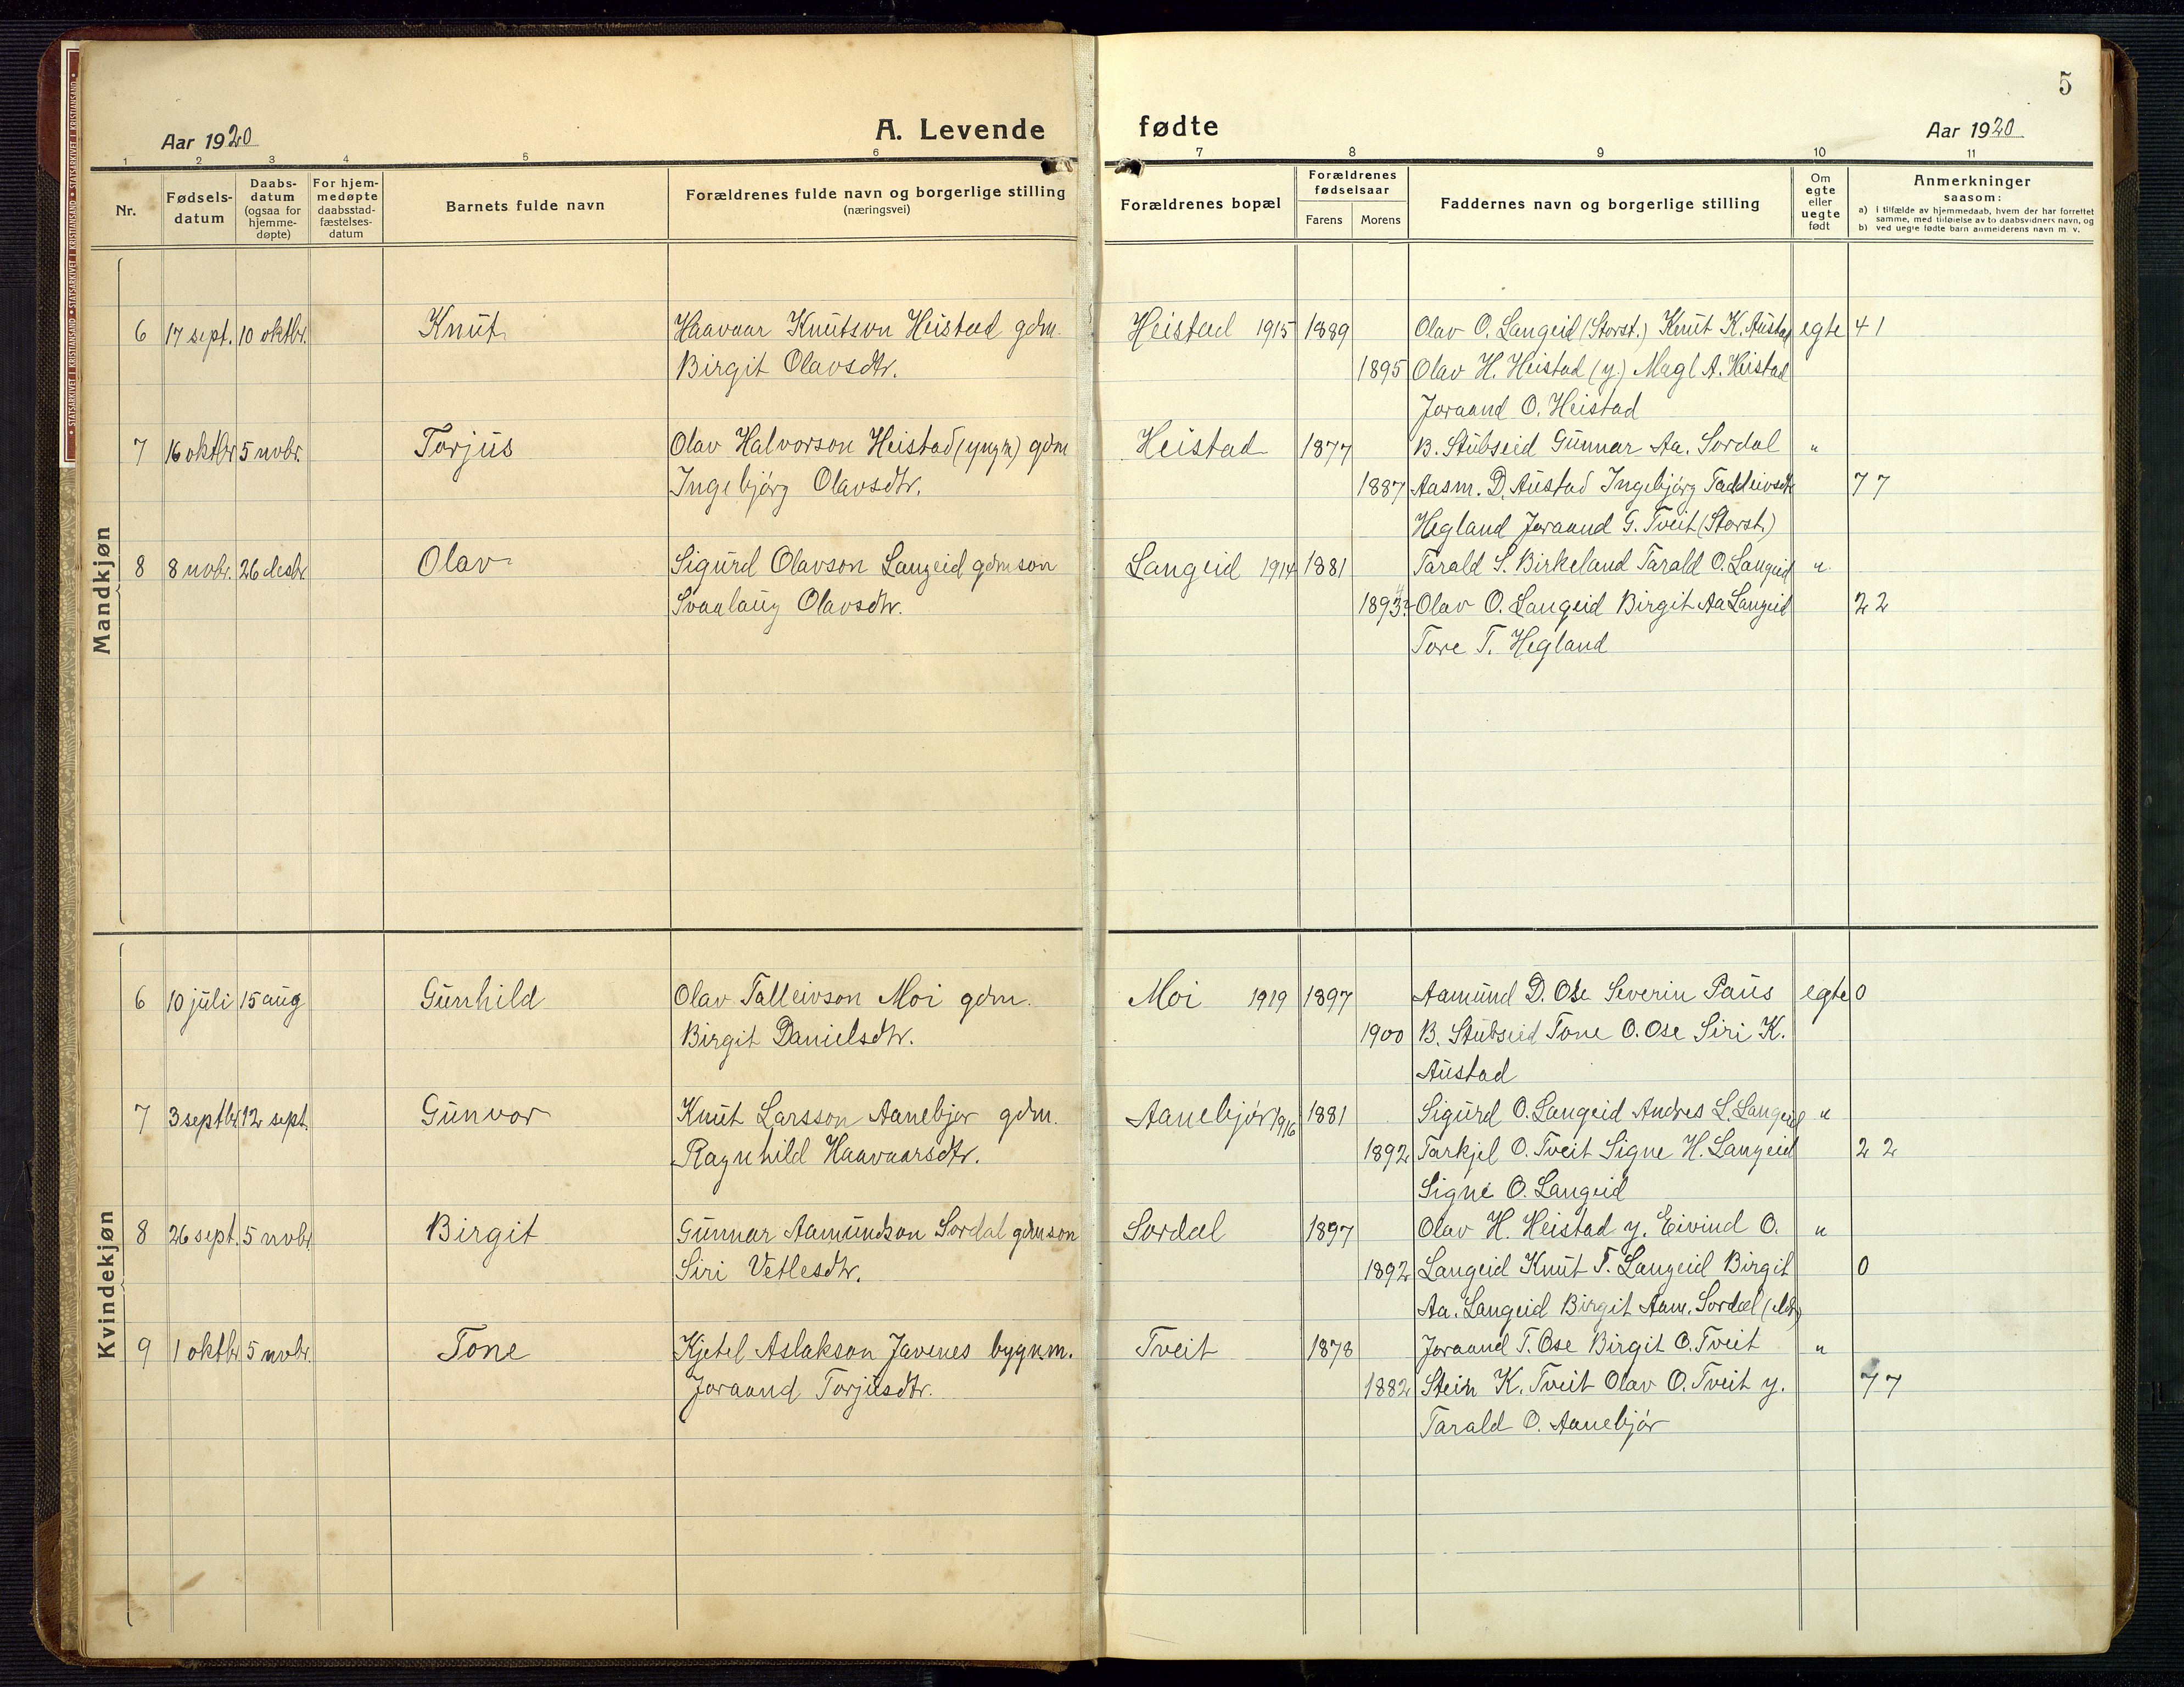 5
Aar 1920 A. Levende fødte Aar 1920
1 2 3 4 5 6 7 8 9 10 11
Nr. Fødsels-datum Daabs-datum (ogsaa for hjemme-døpte) For hjem-medøpte daabsstad-fæstelses-datum Barnets fulde navn Forældrenes fulde navn og borgerlige stilling (næringsvei) Forældrenes bopæl Forældrenes fødselsaar Farens Morens Faddernes navn og borgerlige stilling Om egte eller uegte født Anmerkninger saasom:
a) i tilfælde av hjemmedaab, hvem der har forrettet samme, med tilføielse av to daabsvidners navn, og
b) ved uegte fødte barn anmelderens navn m. v.
Mandkjøn
6 17 sept. 10 oktbr. Knut Haavaar Knutson Heistad gdm. Heistad 1915 1889 Olav O. Langeid (Storst.) Knut K. Austad egte 4 1
Birgit Olavsdtr. 1895 Olav H. Heistad (y.) Magl A. Heistad
Joraand O. Heistad
7 16 oktbr 5 novbr. Torjus Olav Halvorson Heistad (yngr) gdm Heistad 1877 B. Stubseid Gunnar Aa. Sordal "
Ingebjörg Olavsdtr. 1887 Aasm. D. Austad Ingebjörg Taddeivsdtr 7 7
Hegland Joraand G. Tveit (Storst.)
8 8 novbr. 26 desbr. Olav Sigurd Olavson Langeid gdmson Langeid 1914 1881 Tarald S. Birkeland Tarald O. Langeid "
Svaalaug Olavsdtr. 1893? Olav O. Langeid Birgit Aa Langeid 2 2
Tore T. Hegland
Kvindekjøn
6 10 juli 15 aug Gunhild Olav Talleivson Moi gdm. Moi 1919 1897 Aamund D. Ose Severin Paus egte 0
Birgit Danielsdtr. 1900 B. Stubseid Tone O. Ose Siri K.
Austad
7 3 septbr 12 sept. Gunvor Knut Larsson Aanebjor gdm. Aanebjör 1916 1881 Sigurd O. Langeid Andres L. Langeid "
Ragnhild Haavaarsdtr. 1892 Tarkjel O. Tveit Signe H. Langeid 2 2
Signe O. Langeid
8 26 sept. 5 novbr. Birgit Gunnar Aamundson Sordal gdmson Sordal 1897 Olav H. Heistad y. Eivind O. "
Siri Vetlesdtr. 1892 Langeid Knut T. Langeid Birgit 0
Aa. Langeid Birgit Aam. Sordal (eldr)
9 1 oktbr 5 novbr. Tone Kjetel Aslakson Javenes bygnm. Tveit 1878 Joraand T. Ose Birgit O. Tveit "
Joraand Torjusdtr. 1882 Stein K. Tveit Olav O. Tveit y. 7 7
Tarald O. Aanebjör
STATSARKIVET I KRISTIANSAND • STATSARKIVET I KRISTIANSAND • STATSARKIVET I KRISTIANSAND